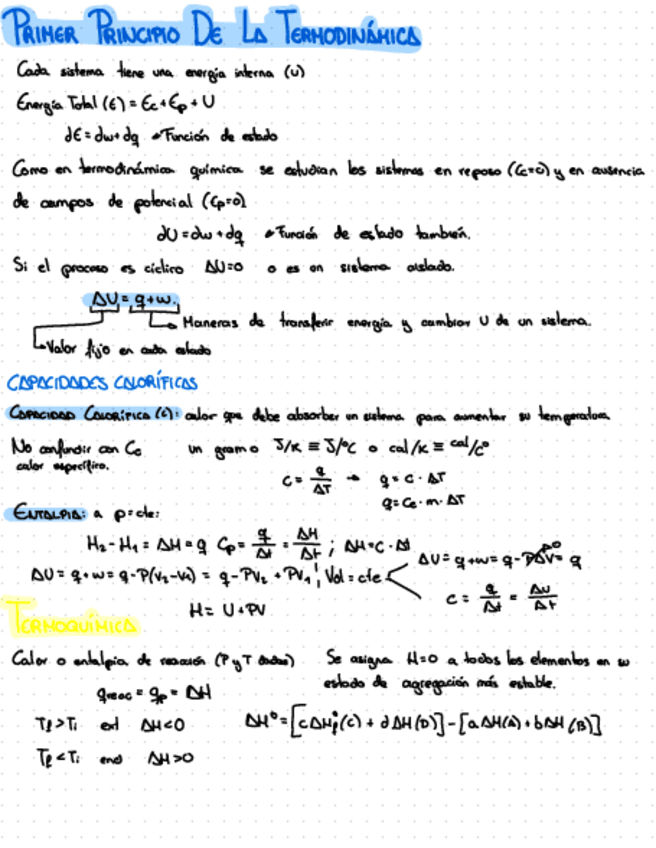 PRIMER PRINCIPIO DE LA TERMODINÁMICA
Cada sistema tiene una energía interna (U)
Energía Total (E) = Ec + Ep + U
dE = dw + dq Función de estado
Como en termodinámica química se estudian los sistemas en reposo (Ec=0) y en ausencia
de campos de potencial (Ep=0)
dU = dw + dq Función de estado también.
Si el proceso es cíclico ΔU=0 o es un sistema aislado.
ΔU = q + w.
Maneras de transferir energía y cambiar U de un sistema.
Valor fijo en cada estado
CAPACIDADES CALORÍFICAS
CAPACIDAD CALORÍFICA (C): calor que debe absorber un sistema para aumentar su temperatura
No confundir con Ce un gramo J/K ≡ J/ºC o cal/K ≡ cal/Cº
calor específico.
C = q/ΔT → q = C · ΔT
q = Ce · m · ΔT
ENTALPIA: a p=cte:
H₂ - H₁ = ΔH = q Cp = q/Δt = ΔH/Δt ; ΔH = C · Δt
ΔU = q + w = q - PΔV = q
ΔU = q + w = q - P(V₂-V₁) = q - PV₂ + PV₁ ¦ Vol = cte
C = q/Δt = ΔU/Δt
H = U + PV
TERMOQUÍMICA
Calor o entalpia de reacción (P y T dadas) Se asigna H=0 a todos los elementos en su
estado de agregación más estable.
qreac = qp = ΔH
Tf > Ti ext ΔH<0 ΔHº = [cΔHfº(C) + dΔH(D)] - [aΔH(A) + bΔH(B)]
Tf < Ti end ΔH>0